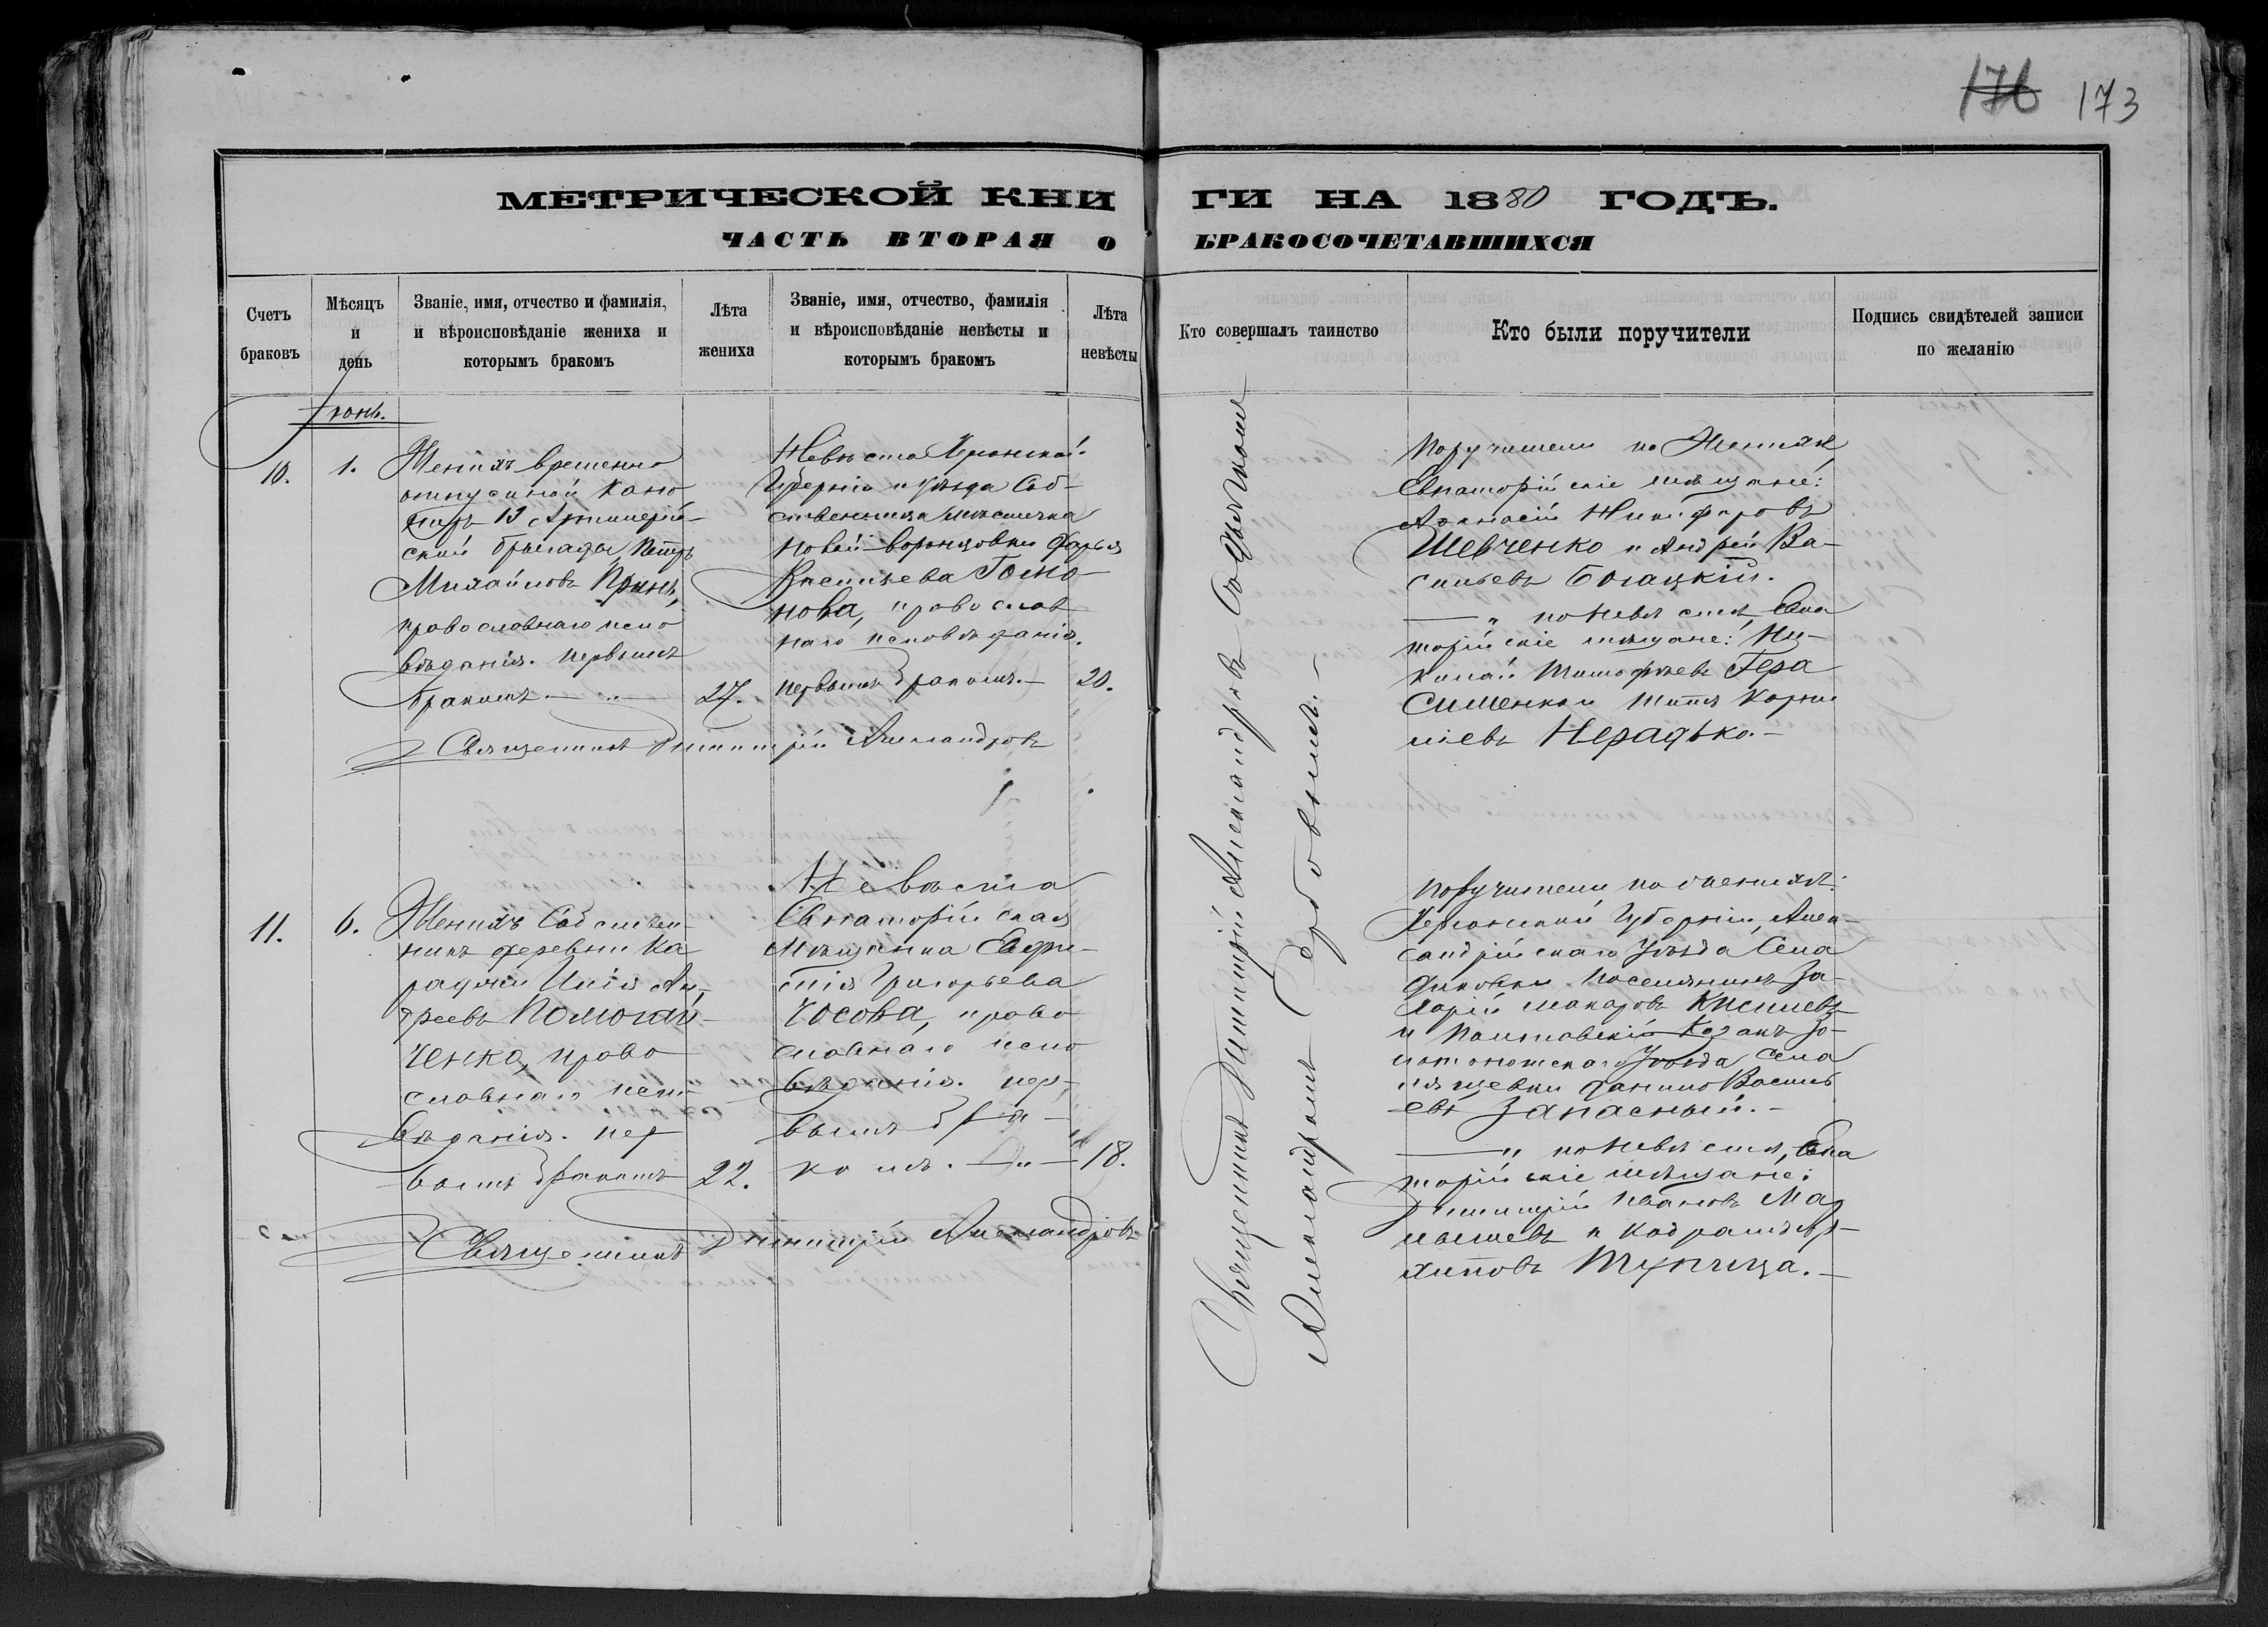 176 173
МЕТРИЧЕСКОЙ КНИГИ НА 1880 ГОДЪ.
ЧАСТЬ ВТОРАЯ О БРАКОСОЧЕТАВШИХСЯ
Счетъ браковъ
Мѣсяцъ и день
Званіе, имя, отчество и фамилія,
и вѣроисповѣданіе жениха и
которымъ бракомъ
Лѣта жениха
Званіе, имя, отчество, фамилія
и вѣроисповѣданіе невѣсты и
которымъ бракомъ
Лѣта невѣсты
Кто совершалъ таинство
Кто были поручители
Подпись свидѣтелей записи
по желанію
Іюнь.
10.
1.
Женихъ временно
отпускной Кано-
ниръ 13 Артиллерій-
ской бригады, Петръ
Михайловъ
православнаго испо
вѣданія. первымъ
бракомъ. — „
27.
Невѣста Херсонской
Губерніи и уѣзда Соб-
ственница мѣстечка
Новой-Воронцовки Дарья
Васильева
нова, православ
наго исповѣданія.
первымъ бракомъ. —
20.
Священникъ Димитрій Александровъ
Поручители по Женихѣ,
Евпаторійскіе мѣщане:
Афанасій Никифоровъ
Шевченко и Андрей Ва-
сильевъ Богацкій.
— „ по Невѣстѣ, Евпа
торійскіе мѣщане: Ни-
колай Тимофѣевъ Гера
сименко и Титъ Корни
ліевъ Нерадько. —
11.
6.
Женихъ Собствен-
никъ деревни Ка-
раджи Илія Ан-
дреевъ Помогай-
ченко, право
славнаго испо-
вѣданія. пер
вымъ бракомъ
22.
Невѣста
Евпаторійская
Мѣщанка Евфи-
мія Григорьева
Усова, право
славнаго испо
вѣданія. пер-
вымъ бра-
комъ. — „ —
18.
Священникъ Димитрій Александровъ
Священникъ Димитрій Александровъ съ Дьячкомъ
Александромъ Сербовымъ. —
Поручители по женихѣ:
Херсонской Губерніи, Алек-
сандрійскаго Уѣзда Села
поселянинъ За-
харій Макаровъ Киселевъ
и Полтавскій Козакъ Зо-
лотоношскаго Уѣзда Села
Данило Василь
евъ Запасный. —
— „ по Невѣстѣ, Евпа
торійскіе мѣщане:
Димитрій Ивановъ Ма
лышевъ и Кодратъ Ар-
хиповъ Тупица. —